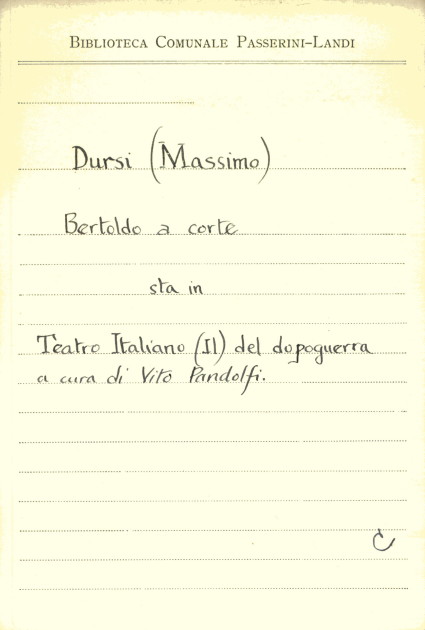 BIBLIOTECA COMUNALE PASSERINI-LANDI
Dursi (Massimo)
Bertoldo a corte
sta in
Teatro Italiano (Il) del dopoguerra
a cura di Vito Pandolfi.